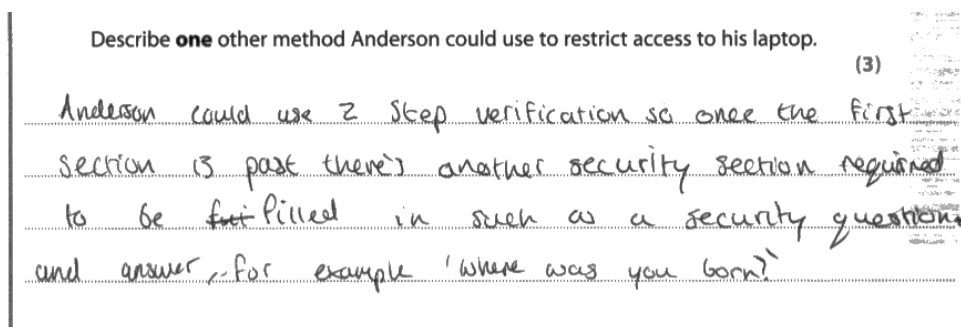 Describe one other method Anderson could use to restrict access to his laptop.
(3)
Anderson could use 2 Step verification so once the first
section is past there's another security section required
to be filled in such as a security question
and answer, for example 'where was you born?'